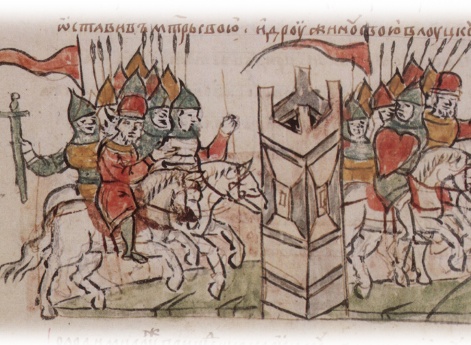 ѡставивъ мт҃рь свою · и дроужинѹ свою в лоуцк